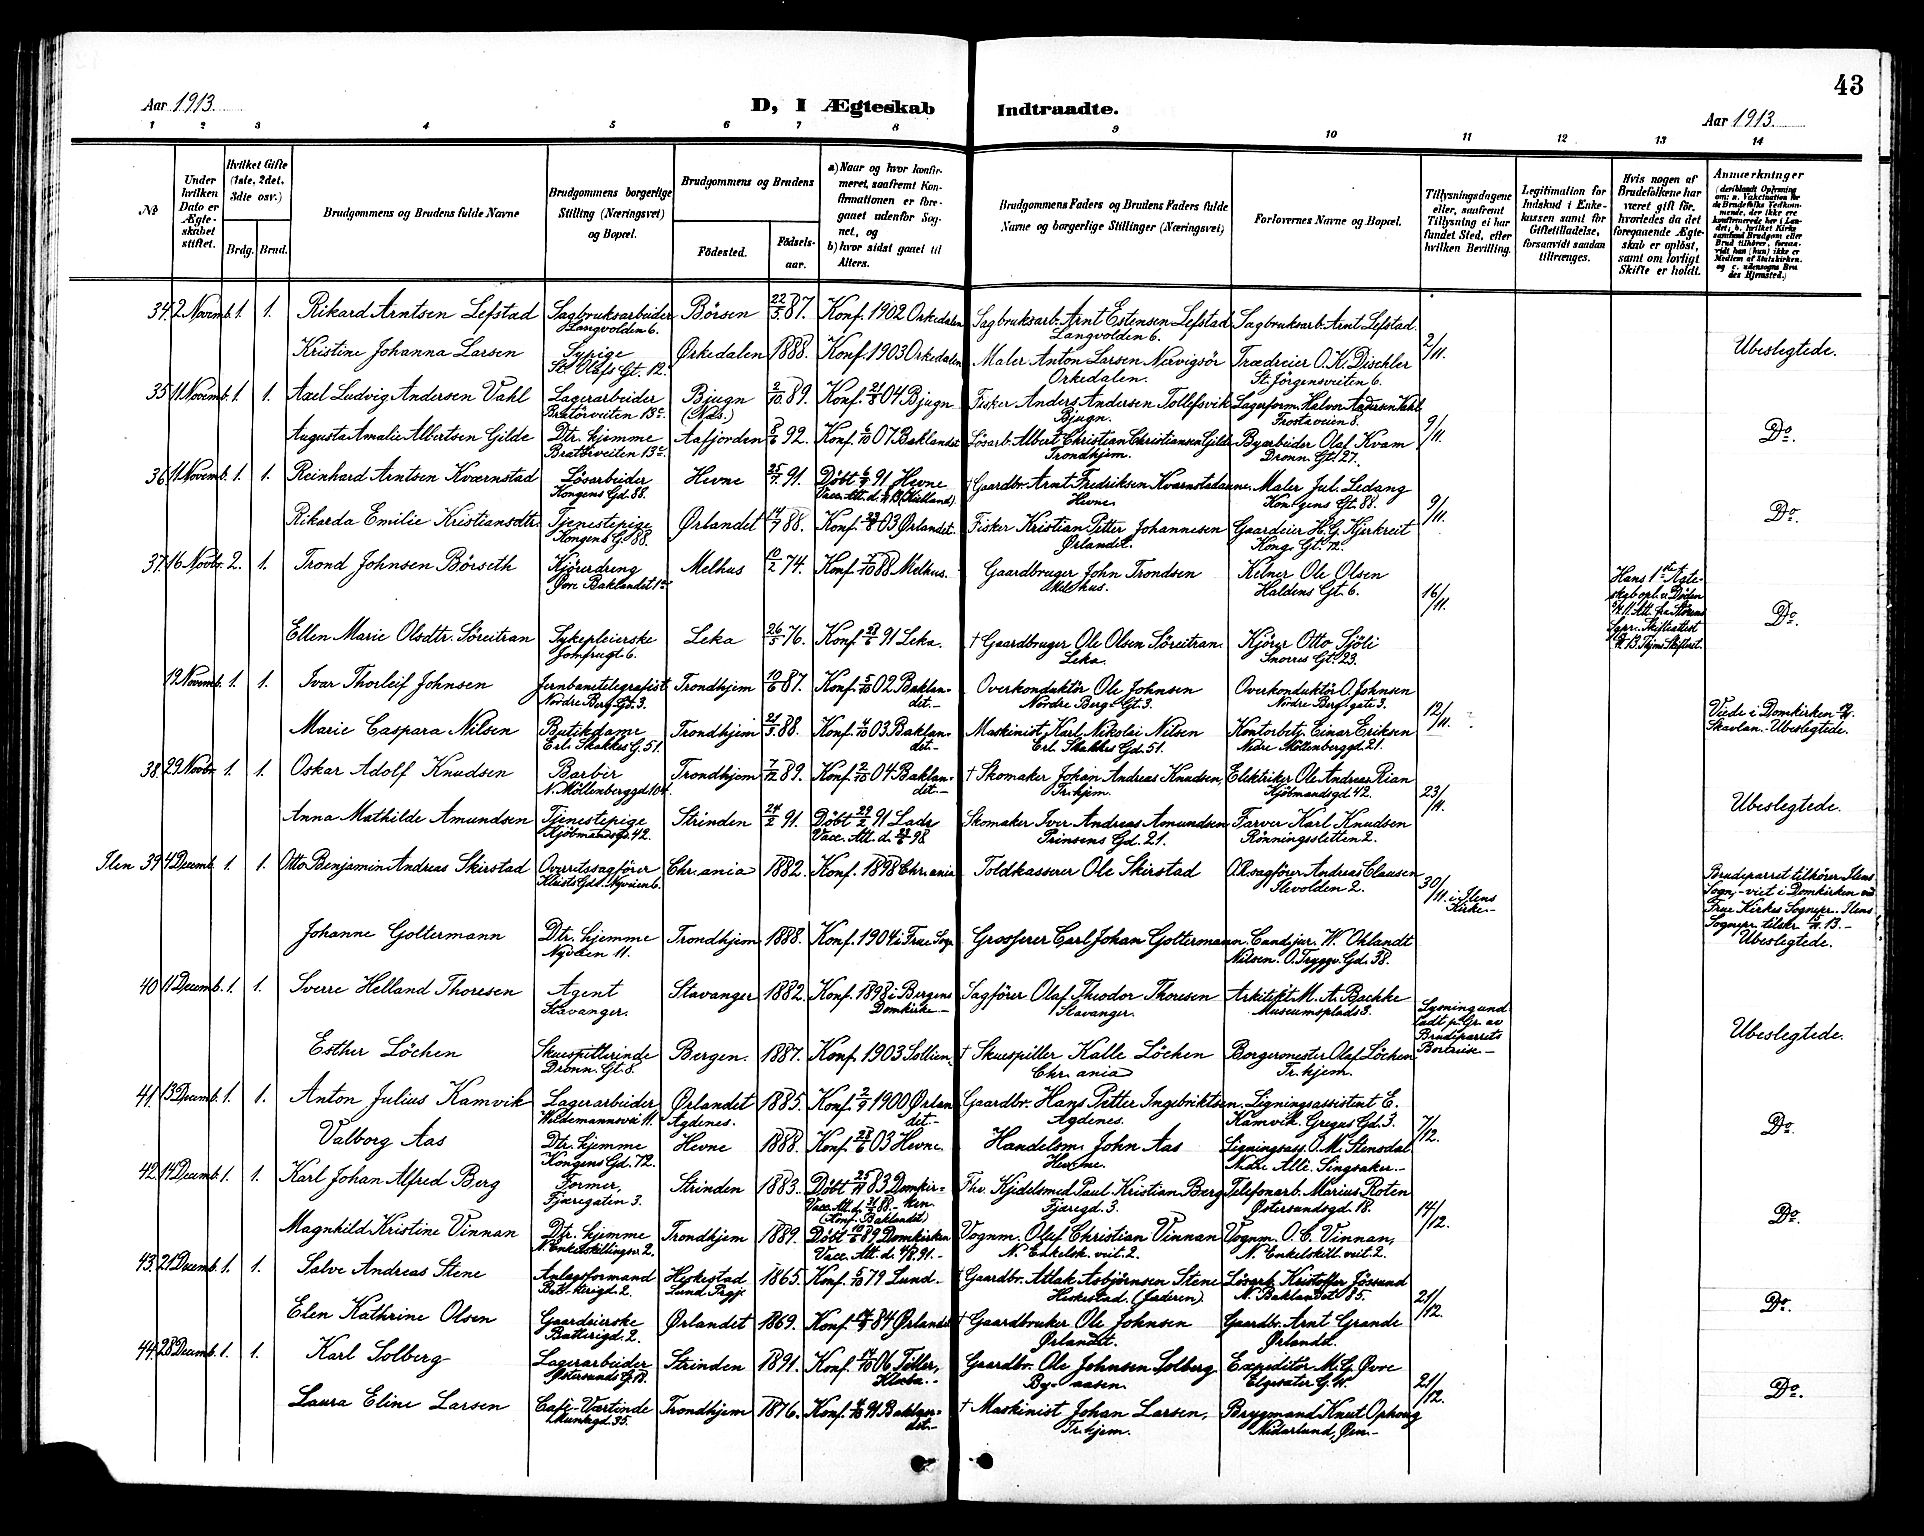 43
Aar 1913.
D, I Ægteskab Indtraadte.
Aar 1913.
1 2 3 4 5 6 7 8 9 10 11 12 13 14
No
Under hvilken Dato er Ægteskabet stiftet.
Hvilket Gifte (1ste, 2det, 3die osv.)
Brdg. Brud.
Brudgommens og Brudens fulde Navne
Brudgommens borgerlige Stilling (Næringsvei) og Bopæl.
Brudgommens og Brudens
Födested.
Födsels-aar.
a) Naar og hvor konfirmeret, saafremt Konfirmationen er foregaaet udenfor Sognet, og
b) hvor sidst gaaet til Alters.
Brudgommens Faders og Brudens Faders fulde Navne og borgerlige Stillinger (Næringsvei)
Forlovernes Navne og Bopæl.
Tillysningsdagene eller, saafremt Tillysning ei har fundet Sted, efter hvilken Bevilling.
Legitimation for Indskud i Enkekassen samt for Giftetilladelse, forsaavidt saadan tiltrænges.
Hvis nogen af Brudefolkene har været gift før, hvorledes da det foregaaende Ægteskab er opløst, samt om lovligt Skifte er holdt.
Anmærkninger
34. 2 Novemb. 1. 1. Rikard Arntsen Lefstad Sagbruksarbeider Langvolden 6. Börsen 22/5 87. Konf. 1902 Orkedalen Sagbruksarb. Arnt Estensen Lefstad Langvolden 6. Sagbruksarb. Arnt Lefstad. 2/11.
Kristine Johanna Larsen Sypige St. Olafs Gt. 12. Orkedalen 1888. Konf. 1903 Orkedalen Maler Anton Larsen Nervigsör Orkedalen. Trædreier O. K. Dischler St. Jörgensveiten 6. Ubeslegtede.
35 11 Novemb. 1. 1. Axel Ludvig Andersen Vahl Lagerarbeider Bratörveiten 13c. Bjugn (Næs.) 2/10 89. Konf. 21/8 04 Bjugn Fisker Anders Andersen Tollefsvik Bjugn. Lagerform. Halvor Andersen Vahl Frostaveien 8. 9/11.
Augusta Amalie Albertsen Gilde Dtr. hjemme Bratörveiten 13c. Aafjorden 8/6 92. Konf. 6/10 07 Baklandet Lösarb. Albert Christian Christiansen Gilde Trondhjem. Byarbeider Olaf Kvam Dronn. Gt. 27. Do.
36 11 Novemb. 1. 1. Reinhard Arntsen Kværnstad Lösarbeider Kongens Gd. 88. Hevne 25/7 91. Döbt 6/9 91 Hevne † Gaardbr. Arnt Fredriksen Kvarnstadaunet Hevne. Maler Jul. Ledang Kongens Gt. 88. 9/11.
Rikarda Emilie Kristiansdtr. Tjenestepige Kongens G. 88. Ørlandet 14/7 88. Konf. 23/8 03 Ørlandet. Fisker Kristian Petter Johannesen Ørlandet. Gaardeier H. G. Kjerkreit Kong. Gt. 72. Do.
37. 16 Novbr. 2. 1. Trond Johnsen Börseth Kjöredreng Øvre Baklandet 1c Melhus 10/2 74. Konf. 7/10 88 Melhus. Gaardbruger John Trondsen Melhus. Kelner Ole Olsen Haldens Gt. 6. 16/11. Hans 1ste Ægteskab opl. v. Döden
Ellen Marie Olsdtr. Söreitran Sykepleierske Jomfrugt 6. Leka 26/5 76. Konf. 28/6 91 Leka. † Gaardbruger Ole Olsen Söreitran Leka. Kjörer Otto Sjöli Snorres Gt. 23. Do.
19 Novemb. 1. 1. Ivar Thorleif Johnsen Jernbanetelegrafist Nordre Berg Gt. 3. Trondhjem 10/6 87. Konf. 5/10 02 Baklandet. Overkonduktör Ole Johnsen Nordre Berg. Gt. 3. Overkonduktör O. Johnsen Nordre Berg gate 3. 12/11.
Marie Caspara Nilsen Butikdame Erl. Skakkes G. 51. Trondhjem 21/3 88. Konf. 4/10 03 Baklandet. Maskinist Karl Nikolai Nilsen Erl. Skakkes Gd. 51. Kontorbetj. Einar Eriksen Nedre Möllenberggt. 21. Viede i Domkirken Skavlan. Ubeslegtede.
38. 29 Novbr 1. 1. Oskar Adolf Knudsen Barber N. Möllenberggd. 104. Trondhjem 7/12 89. Konf. 2/10 04 Baklandet. † Skomaker Johan Andreas Knudsen, Tr.hjem. Elektriker Ole Andreas Rian Kjöbmandsgd 42. 23/11.
Anna Mathilde Amundsen Tjenestepige Kjöbmandsgt. 42. Strinden 24/2 91. Döbt 29/3 91 Lade Skomaker Iver Andreas Amundsen Prinsens Gd. 21. Farver Karl Knudsen Rönningssletten 2. Ubeslegtede.
Ilen 39 4 Decemb. 1. 1. Otto Benjamin Andreas Skirstad Overretssagförer Chr.ania 1882. Konf. 1898 Chr.ania Toldkasserer Ole Skirstad O.R.sagförer Andreas Clausen Ilevolden 2. 30/11. i Ilens Kirke. Brudeparret tilhörer Ilens Sogn, viet i Domkirken ved Frue Kirkes Sognepr.
Johanne Goltermann Dtr. hjemme Nyveien 11. Trondhjem 1888. Konf. 1904 i Frue Sogn Grosserer Carl Johan Goltermann. Cand. jur. W. Ohlandt Nilsen. O. Tryggv. Gd. 38. Ubeslegtede.
40 11 Decemb. 1. 1. Sverre Helland Thoresen Agent Stavanger. Stavanger 1882. Konf. 1898 i Bergens Domkirke. Sagförer Olaf Theodor Thoresen Stavanger. Arkitekt M. A. Bachke Museumsplads 3. Lysning undladt p. Gr. av Brudeparrets Bortreise.
Esther Löchen Skuespillerinde Dronn. Gt. 8. Bergen. 1887. Konf. 1903 Sollien, † Skuespiller Kalle Löchen Chr.ania Borgermester Olaf Löchen Tr.hjem. Ubeslegtede.
41. 13 Decemb. 1. 1. Anton Julius Kamvik Lagerarbeider Weidemannsvei 11. Ørlandet Agdenes. 1885. Konf. 2/9 1900 Ørlandet. Gaardbr. Hans Petter Ingebriktsen. Agdenes. Ligningsassistent E. Kamvik. Gregus Gd. 3. 7/12.
Valborg Aas Dtr. hjemme Kongens Gd. 72. Hevne 1888. Konf. 28/6 03 Hevne. Handelsm. John Aas Hevne. Ligningsass. O. M. Stensdal Nedre Allé. Singsaker. Do.
42. 14 Decemb. 1. 1. Karl Johan Alfred Berg Former, Fjæregaten 3. Strinden 1883. Döbt 25/11 83 Domkirken. Konf. Baklandet Fhv. Kjedelsmed Paul Kristian Berg Fjæregd. 3. Telefonarb. Marius Roten Østersundsgd. 18. 14/12.
Magnhild Kristine Vinnan Dtr. hjemme N. Enkeltskillingsv. 2. Trondhjem 1889. Döbt 10/6 89 Domkirken Vognm. Oluf Christian Vinnan N. Enkelsk. veit. 2. Vognm. O. C. Vinnan, N. Enkelskill. veit 2. Do.
43. 21 Decemb. 1. 1. Salve Andreas Stene Anlagsformand Heskestad Lund Prgj. 1865. Konf. 5/10 79 Lund. † Gaardbr. Atlak Asbjörnsen Stene Heskestad. (Jæderen). Lösarb. Kristoffer Jössund N. Baklandet 85. 21/12.
Elen Kathrine Olsen Gaardeierske Batterigd. 2. Ørlandet 1869. Konf. 84 Ørlandet † Gaardbruker Ole Johnsen Ørlandet. Gaardbr. Arnt Grande Ørlandet. Do.
44. 28 Decemb. 1. 1. Karl Solberg Lagerarbeider Østersunds G. 18. Strinden 1891. Konf. 14/10 06 Tiller, Klæbu. Gaardbr. Ole Johnsen Solberg Byaasen. Expeditör M. G. Øvre Elgesæter G. 21/12.
Laura Eline Larsen Café-Værtinde Munkegd. 35. Trondhjem 1876. Konf. 4/10 91 Baklandet. † Maskinist Johan Larsen, Tr.hjem. Brygmand Knut Ophaug Nidarlund, Øen. Do.